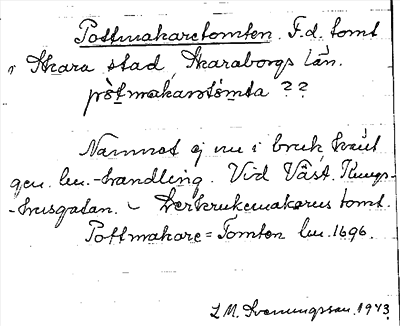 Pottmakaretomten. F.d. tomt
i Skara stad, Skaraborgs län.
pòt̲makarotòm̲ta ??
Namnet ej nu i bruk känt
gen. lm.-handling. Vid Väst. Kungs-
-husgatan. – Lerkrukemakarens tomt.
Pottmakare=Tomten lm. 1696.
L.M. Svenungsson. 1943.